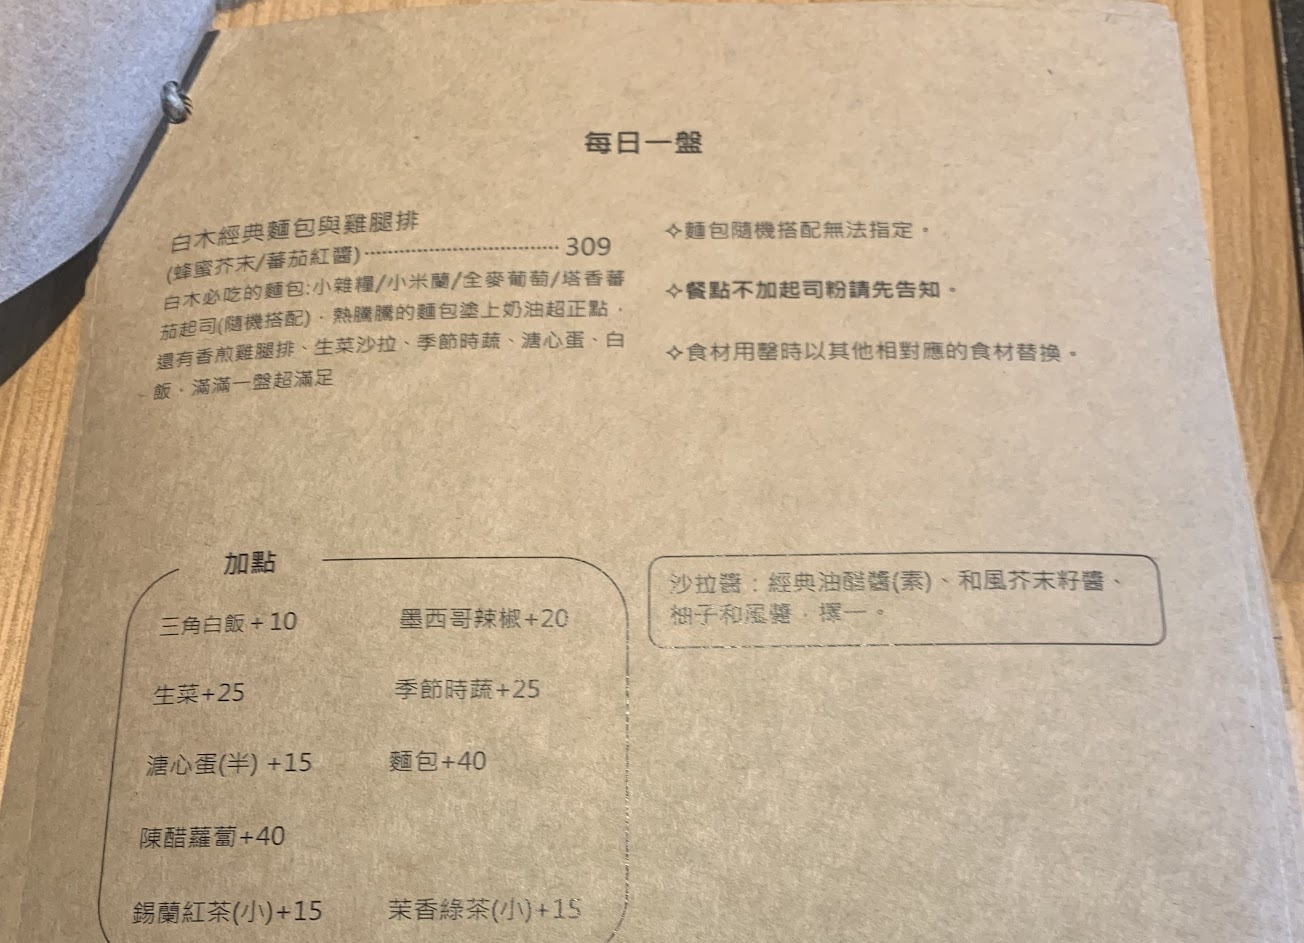 每日一盤
白木經典麵包與雞腿排
(蜂蜜芥末/蕃茄紅醬)································ 309
白木必吃的麵包:小雜糧/小米蘭/全麥葡萄/塔香蕃
茄起司(隨機搭配)，熱騰騰的麵包塗上奶油超正點，
還有香煎雞腿排、生菜沙拉、季節時蔬、溏心蛋、白
飯，滿滿一盤超滿足
✧麵包隨機搭配無法指定。
✧餐點不加起司粉請先告知。
✧食材用罄時以其他相對應的食材替換。
加點
三角白飯+10
墨西哥辣椒+20
生菜+25
季節時蔬+25
溏心蛋(半) +15
麵包+40
陳醋蘿蔔+40
錫蘭紅茶(小)+15
茉香綠茶(小)+15
沙拉醬：經典油醋醬(素)、和風芥末籽醬、
柚子和風醬，擇一。